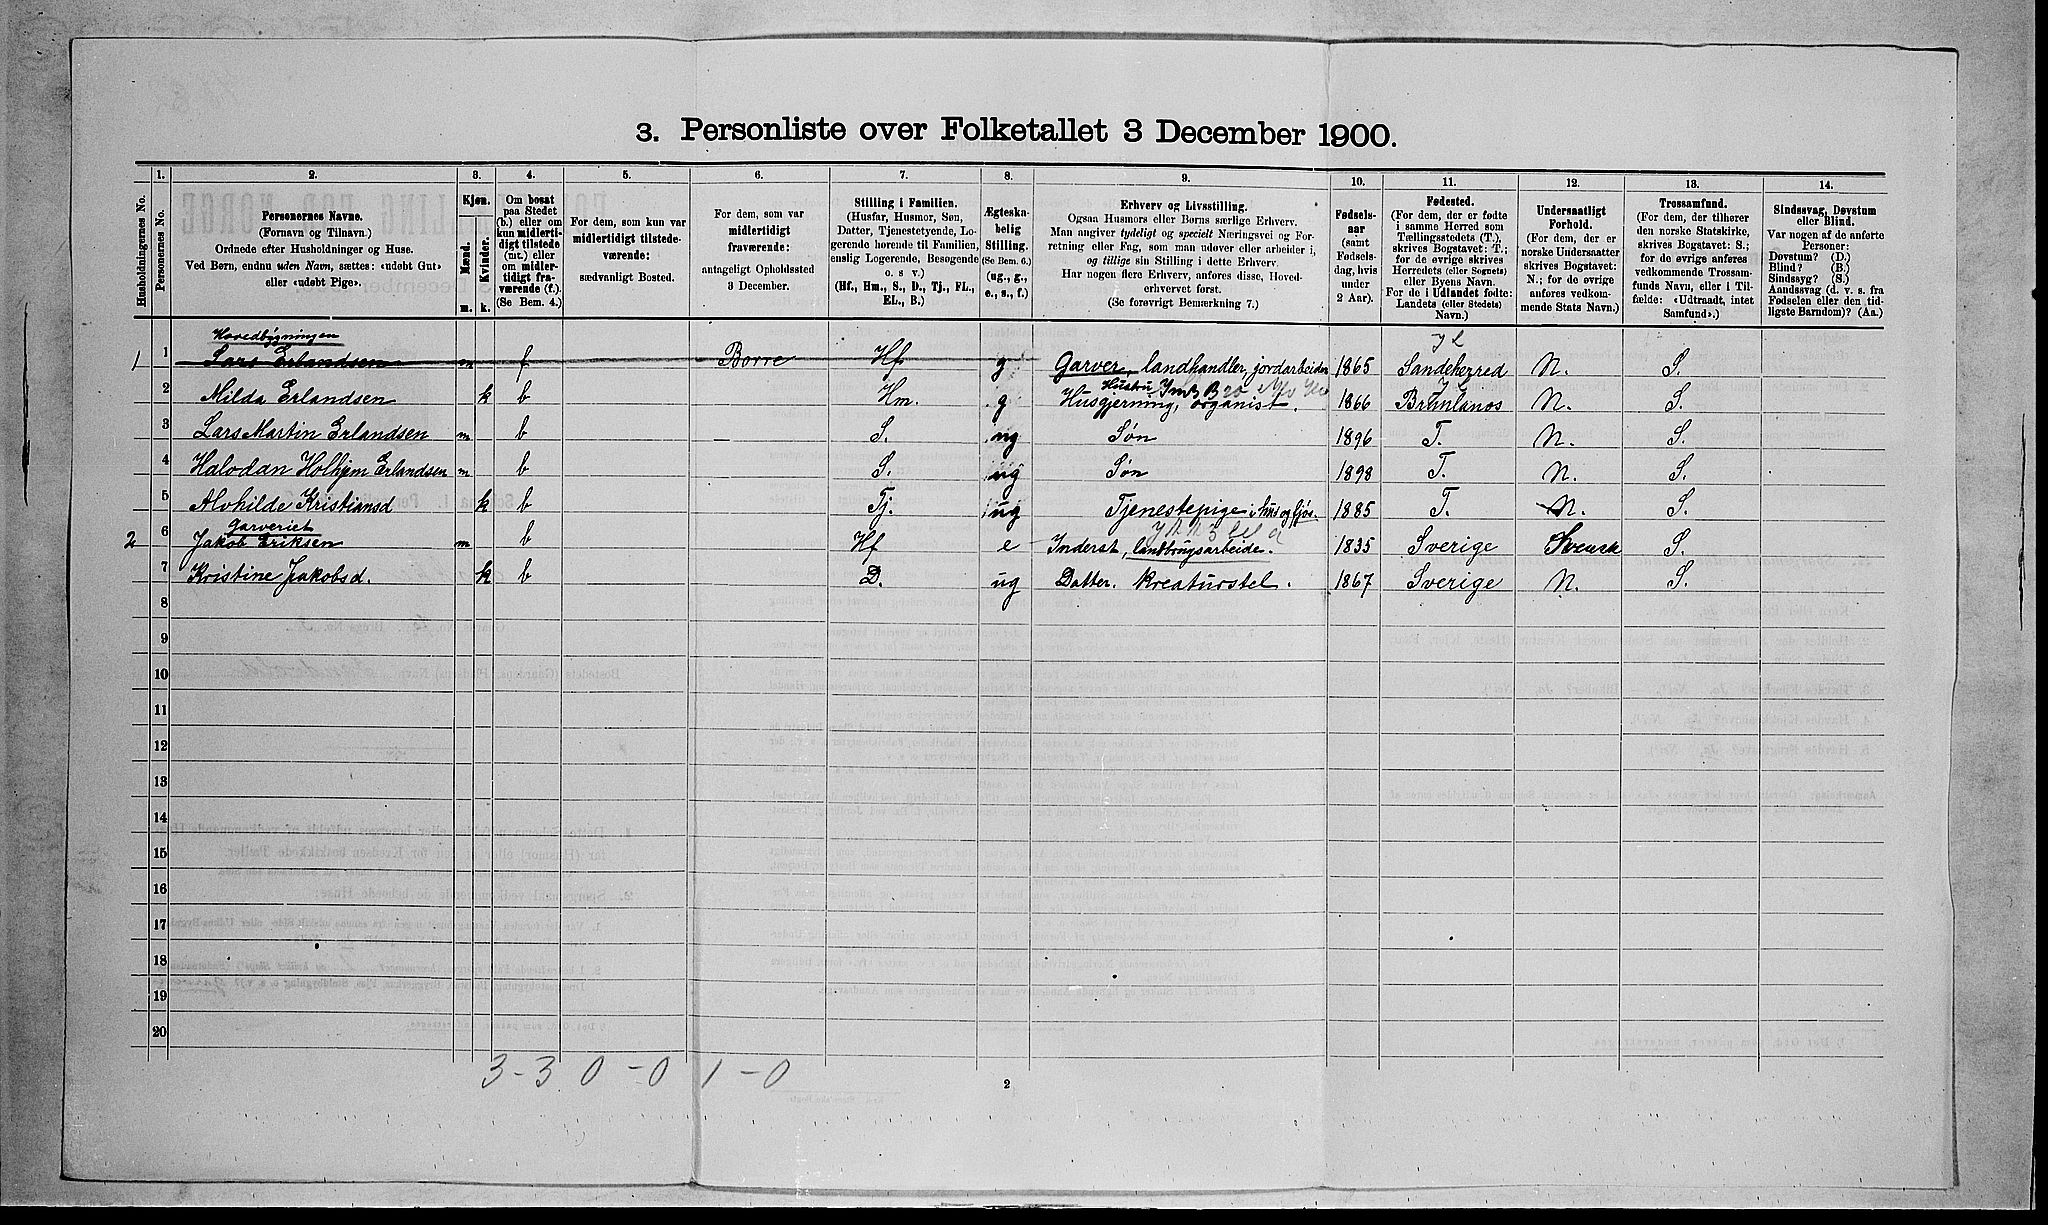 3. Personliste over Folketallet 3 December 1900.
Husholdningernes No.
1.
Personernes No.
2.
Personernes Navne.
(Fornavn og Tilnavn.)
Ordnede efter Husholdninger og Huse.
Ved Børn, endnu uden Navn, sættes: «udøbt Gut»
eller «udøbt Pige».
3.
Kjøn.
Mænd.
Kvinder.
m.
k.
4.
Om bosat
paa Stedet
(b.) eller om
kun midlerti-
digt tilstede
(mt.) eller
om midler-
tidigt fra-
værende (f.)
(Se Bem. 4.)
5.
For dem, som kun var
midlertidigt tilstede-
værende:
sædvanligt Bosted.
6.
For dem, som var
midlertidigt
fraværende:
antageligt Opholdssted
3 December.
7.
Stilling i Familien.
(Husfar, Husmor, Søn,
Datter, Tjenestetyende, Lo-
gerende hørende til Familien,
enslig Logerende, Besøgende
o. s v.)
(Hf., Hm., S., D., Tj., FL.,
EL., B.)
8.
Ægteska-
belig
Stilling.
(Se Bem. 6.)
(ug., g.,
e., s., f.)
9.
Erhverv og Livsstilling.
Ogsaa Husmors eller Børns særlige Erhverv.
Man angiver tydeligt og specielt Næringsvei og For-
retning eller Fag, som man udover eller arbeider i,
og tillige sin Stilling i dette Erhverv.
Har nogen flere Erhverv, anføres disse, Hoved-
erhvervet først.
(Se forøvrigt Bemærkning 7.)
10.
Fødsels-
aar
(samt
Fødsels-
dag, hvis
under
2 Aar).
11.
Fødested.
(For dem, der er fødte
i samme Herred som
Tællingsstedets (T.),
skrives Bogstavet: T.;
for de øvrige skrives
Herredets (eller Sognets)
eller Byens Navn.
For de i Udlandet fødte:
Landets (eller Stedets)
Navn.)
12.
Undersaatligt
Forhold.
(For dem, der er
norske Undersaatter
skrives Bogstavet:
N.; for de øvrige
anføres vedkom-
mende Stats Navn.)
13.
Trossamfund.
(For dem, der tilhører
den norske Statskirke,
skrives Bogstavet: S.;
for de øvrige anføres
vedkommende Trossam-
funds Navn, eller i Til-
fælde: «Udtraadt, intet
Samfund».)
14.
Sindssvag, Døvstum
eller Blind.
Var nogen af de anførte
Personer:
Døvstum? (D.)
Blind? (B.)
Sindssyg? (S.)
Aandssvag (d. v. s. fra
Fødselen eller den tid-
ligste Barndom)? (Aa.)
Hovedbygningen
1 1 Lars Erlandsen m f Borre Hf g Garver, landhandler, jordarbeider 1865 Sandeherred N. S.
Hustru
2 Milda Erlandsen k b Hm. g Husgjerning, organist. 1866 Brunlanes N. S.
3 Lars Martin Erlandsen m b S. ug Søn 1896 T. N. S.
4 Halvdan Holhjem Erlandsen m b S. ug Søn 1898 T. N. S.
5 Alvhilde Kristiansd k b Tj. ug Tjenestepige i hus og fjøs. 1885 T. N. S.
Garveriet
2 6 Jakob Eriksen m b Hf e Inderst, landbrugsarbeide. 1835 Sverige Svensk S.
7 Kristine Jakobsd. k b D. ug Datter. kreaturstel. 1867 Sverige N. S.
8
9
10
11
12
13
14
15
16
17
18
19
20
3-3 0-0 1-0
2